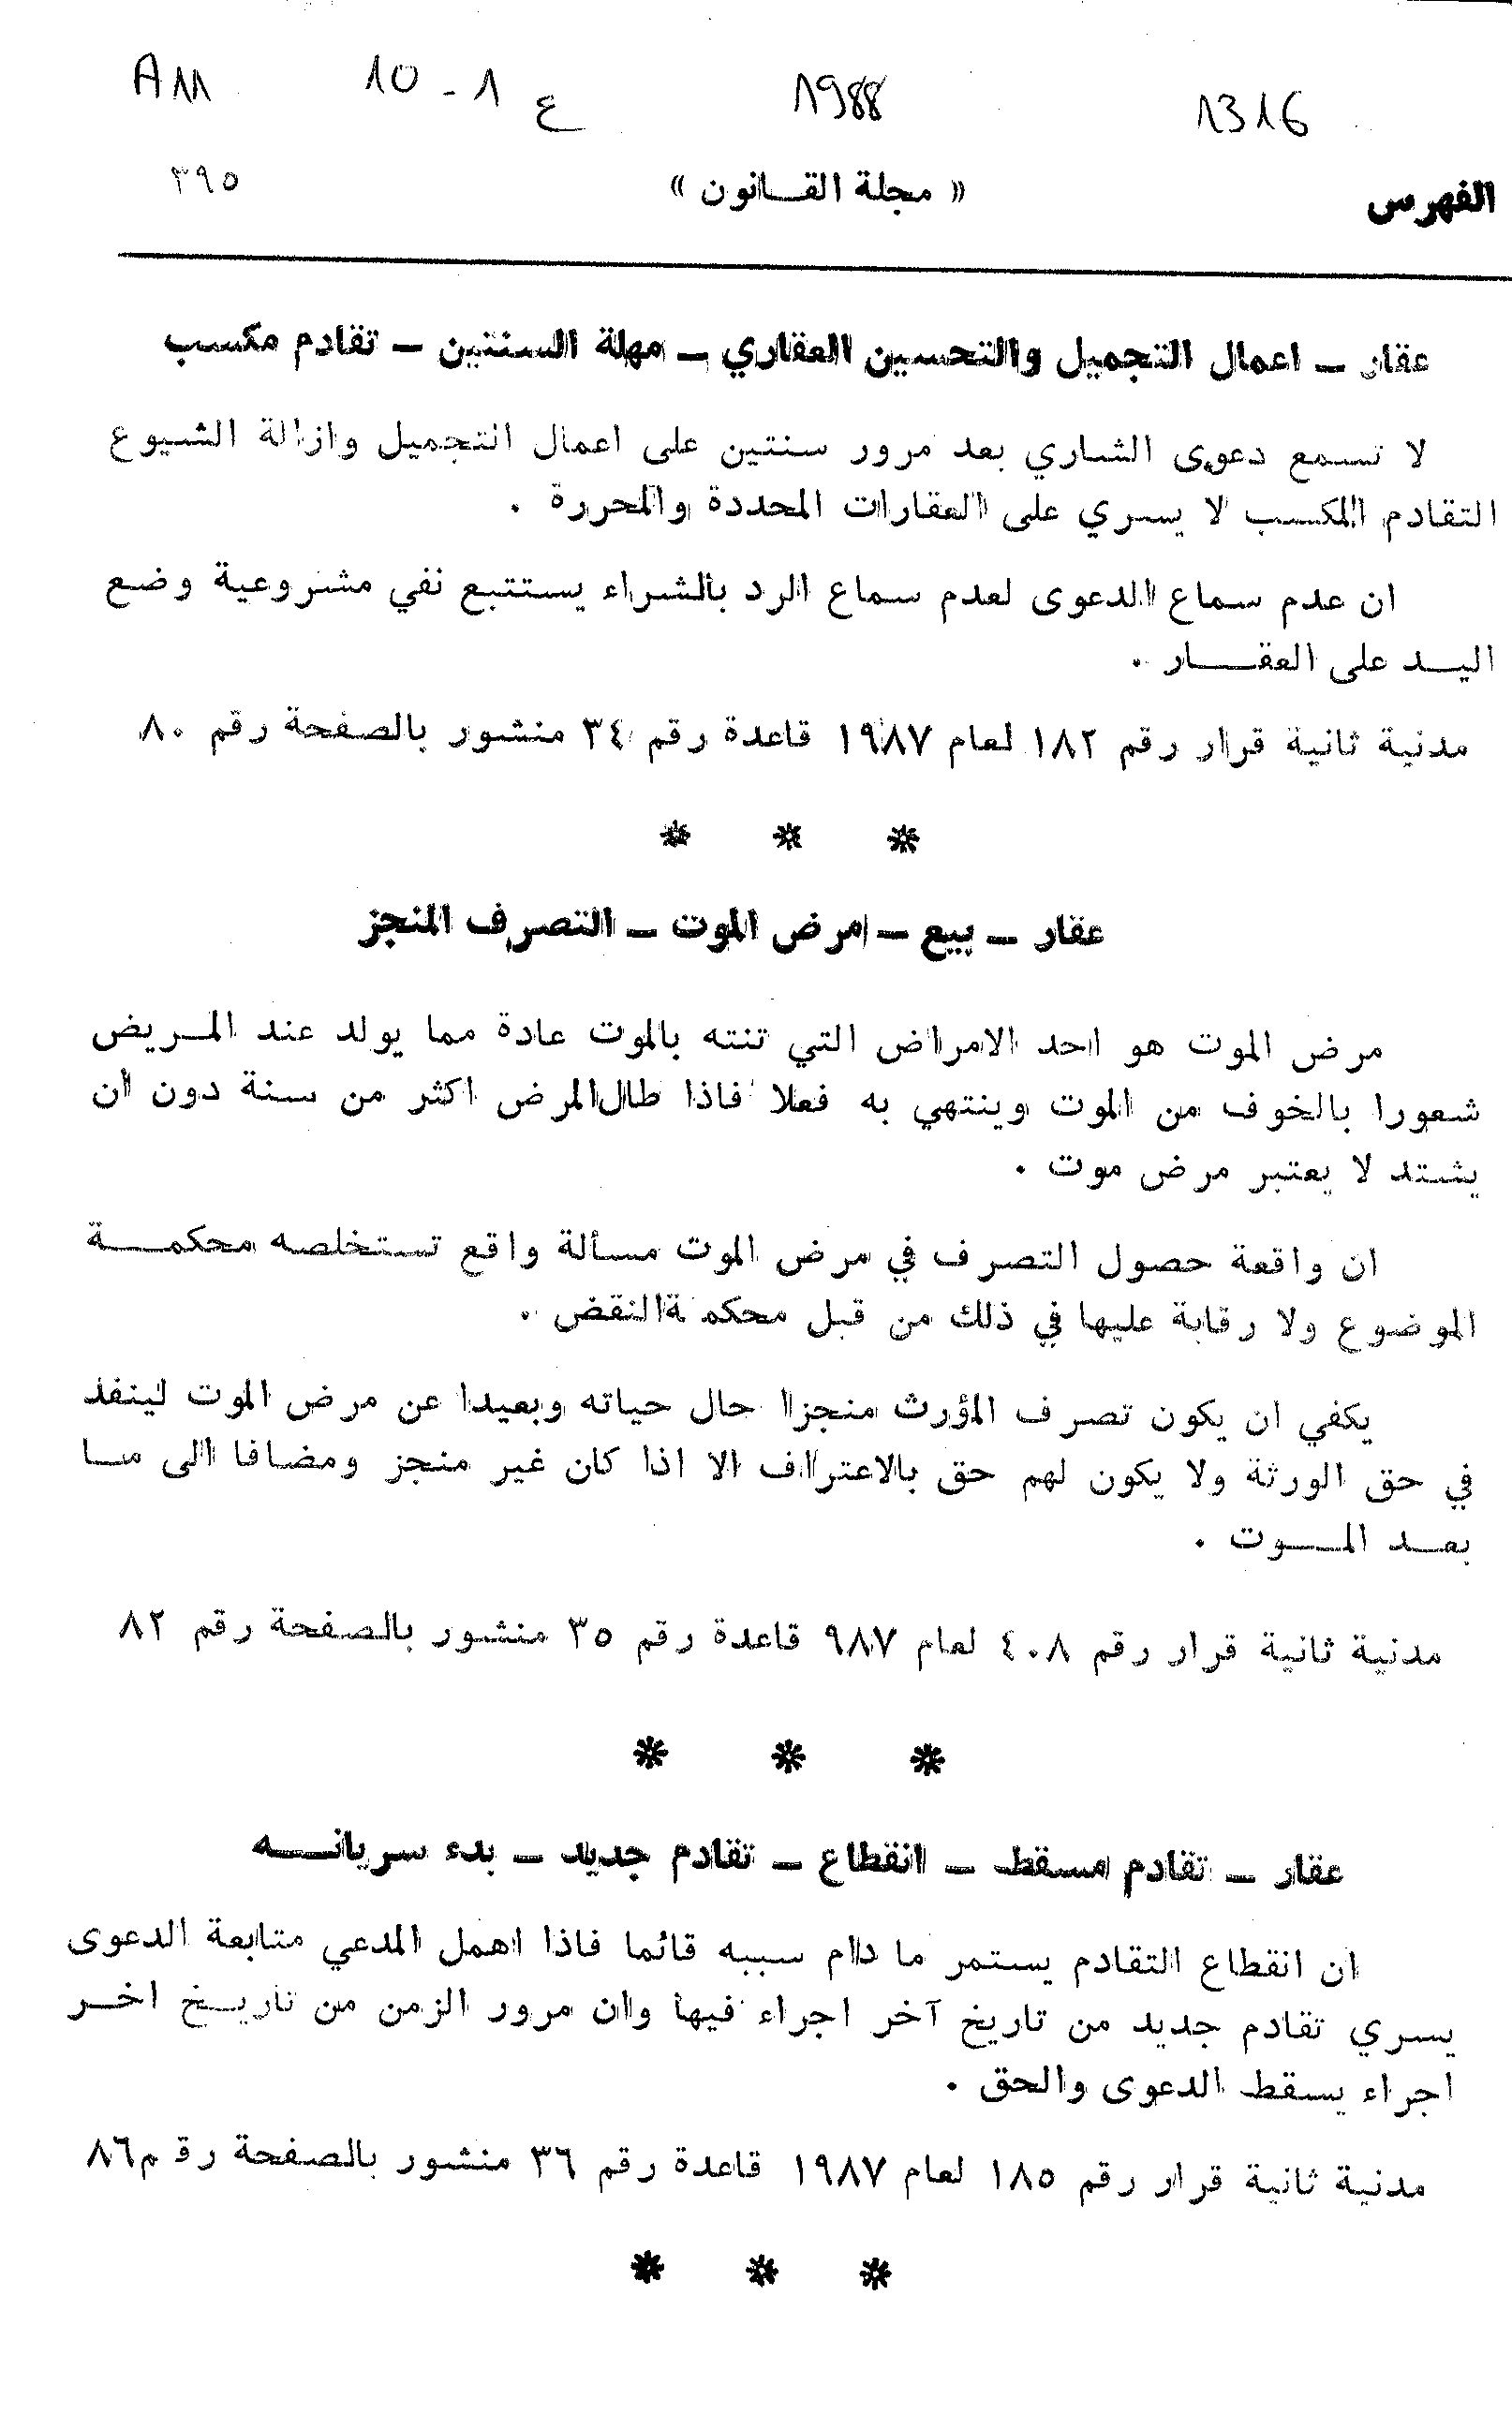 1316 1988 ع 1 - 10 A11
الفهرس « مجلة القانون » ٣٩٥
عقار ــ اعمال التجميل والتحسين العقاري ــ مهلة السنتين ــ تقادم مكسب
لا تسمع دعوى الشاري بعد مرور سنتين على اعمال التجميل وازالة الشيوع
التقادم المكسب لا يسري على العقارات المحددة والمحررة .
ان عدم سماع الدعوى لعدم سماع الرد بالشراء يستتبع نفي مشروعية وضع
اليد على العقار .
مدنية ثانية قرار رقم ١٨٢ لعام ١٩٨٧ قاعدة رقم ٣٤ منشور بالصفحة رقم ٨٠
* * *
عقار ــ بيع ــ مرض الموت ــ التصرف المنجز
مرض الموت هو احد الامراض التي تنته بالموت عادة مما يولد عند المريض
شعورا بالخوف من الموت وينتهي به فعلا فاذا طال المرض اكثر من سنة دون ان
يشتد لا يعتبر مرض موت .
ان واقعة حصول التصرف في مرض الموت مسألة واقع تستخلصه محكمة
الموضوع ولا رقابة عليها في ذلك من قبل محكمة النقض .
يكفي ان يكون تصرف المؤرث منجزا حال حياته وبعيدا عن مرض الموت لينفذ
في حق الورثة ولا يكون لهم حق بالاعتراف الا اذا كان غير منجز ومضافا الى ما
بعد الموت .
مدنية ثانية قرار رقم ٤٠٨ لعام ٩٨٧ قاعدة رقم ٣٥ منشور بالصفحة رقم ٨٢
* * *
عقار ــ تقادم مسقط ــ انقطاع ــ تقادم جديد ــ بدء سريانه
ان انقطاع التقادم يستمر ما دام سببه قائما فاذا اهمل المدعي متابعة الدعوى
يسري تقادم جديد من تاريخ آخر اجراء فيها وان مرور الزمن من تاريخ اخر
اجراء يسقط الدعوى والحق .
مدنية ثانية قرار رقم ١٨٥ لعام ١٩٨٧ قاعدة رقم ٣٦ منشور بالصفحة رقم ٨٦
* * *